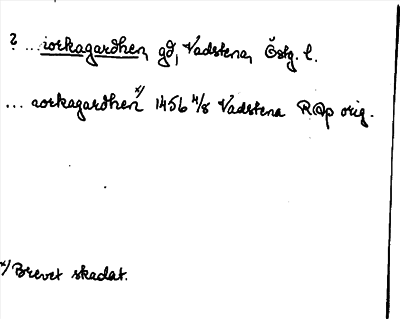 ? ...iorkagardhen, gd, Vadstena, Östg. l.
... aorkagardhen x) 1456 4/8 Vadstena RAp orig.
x) Brevet skadat.